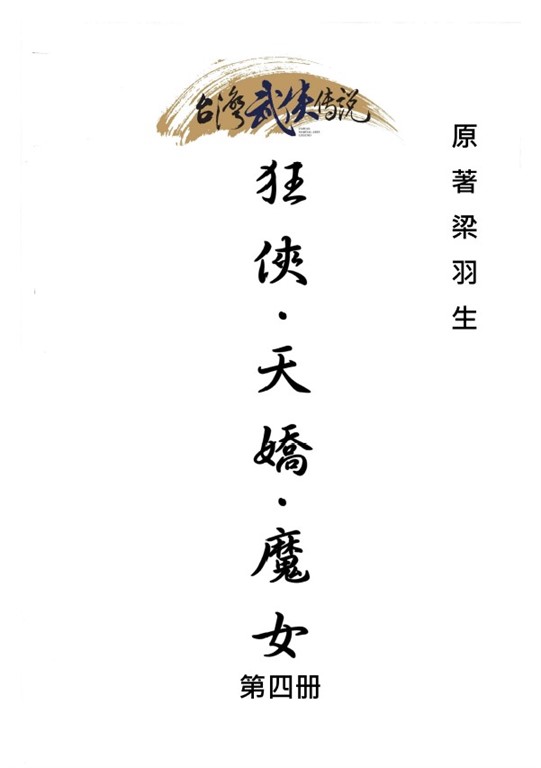 台灣武俠傳說
原著梁羽生
狂俠·天嬌·魔女
第四册